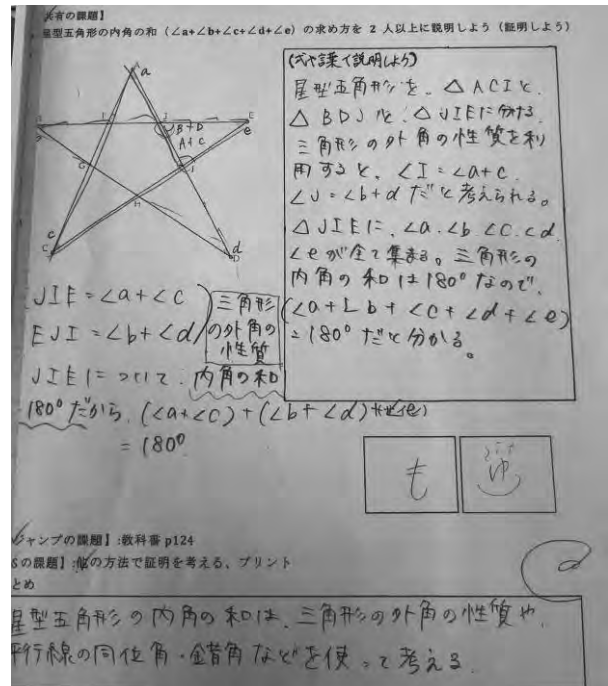 共有の課題】
星型五角形の内角の和（∠a+∠b+∠c+∠d+∠e）の求め方を 2 人以上に説明しよう（証明しよう）
a
E
e
B+D
A+C
J
G
H
c
C
d
D
(式や言葉で説明しよう)
星型五角形を、△ACIと、
△BDJと、△JIEに分ける。
三角形の外角の性質を利
用すると、∠I=∠a+c.
∠J=∠b+dだと考えられる。
△JIEに、∠a.∠b.∠c.∠d.
∠eが全て集まる。三角形の
内角の和は180°なので、
(∠a+∠b+∠c+∠d+∠e)
=180°だと分かる。
JIE=∠a+∠c
EJI=∠b+∠d
三角形
の外角の
性質
JIEについて、内角の和
180°だから、(∠a+∠c)+(∠b+∠d)+(∠e)
=180°
も
ゆ
ジャンプの課題】:教科書 p124
Sの課題】:他の方法で証明を考える、プリント
とめ
星型五角形の内角の和は、三角形の外角の性質や、
平行線の同位角・錯角などを使って考える.